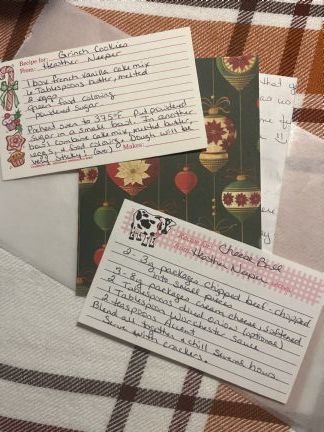 Recipe for: Grinch Cookies
From: Heather Neeper
1 box french vanilla cake mix
6 Tablespoons butter, melted
2 eggs
green food coloring
powdered sugar
Preheat oven to 375°F. Put powdered
sugar in a small bowl. In another
bowl combine cake mix, melted butter,
eggs, & food coloring. Dough will be
very sticky! (over) Makes:
Cheese Ball
Heather Neeper
2 - 3g packages chipped beef - chopped
into small pieces
3 - 8g packages cream cheese, softened
2 Tablespoons diced onion (optional)
1 Tablespoon worchester sauce
2 teaspoons accent
Blend all together & chill several hours.
Serve with crackers.